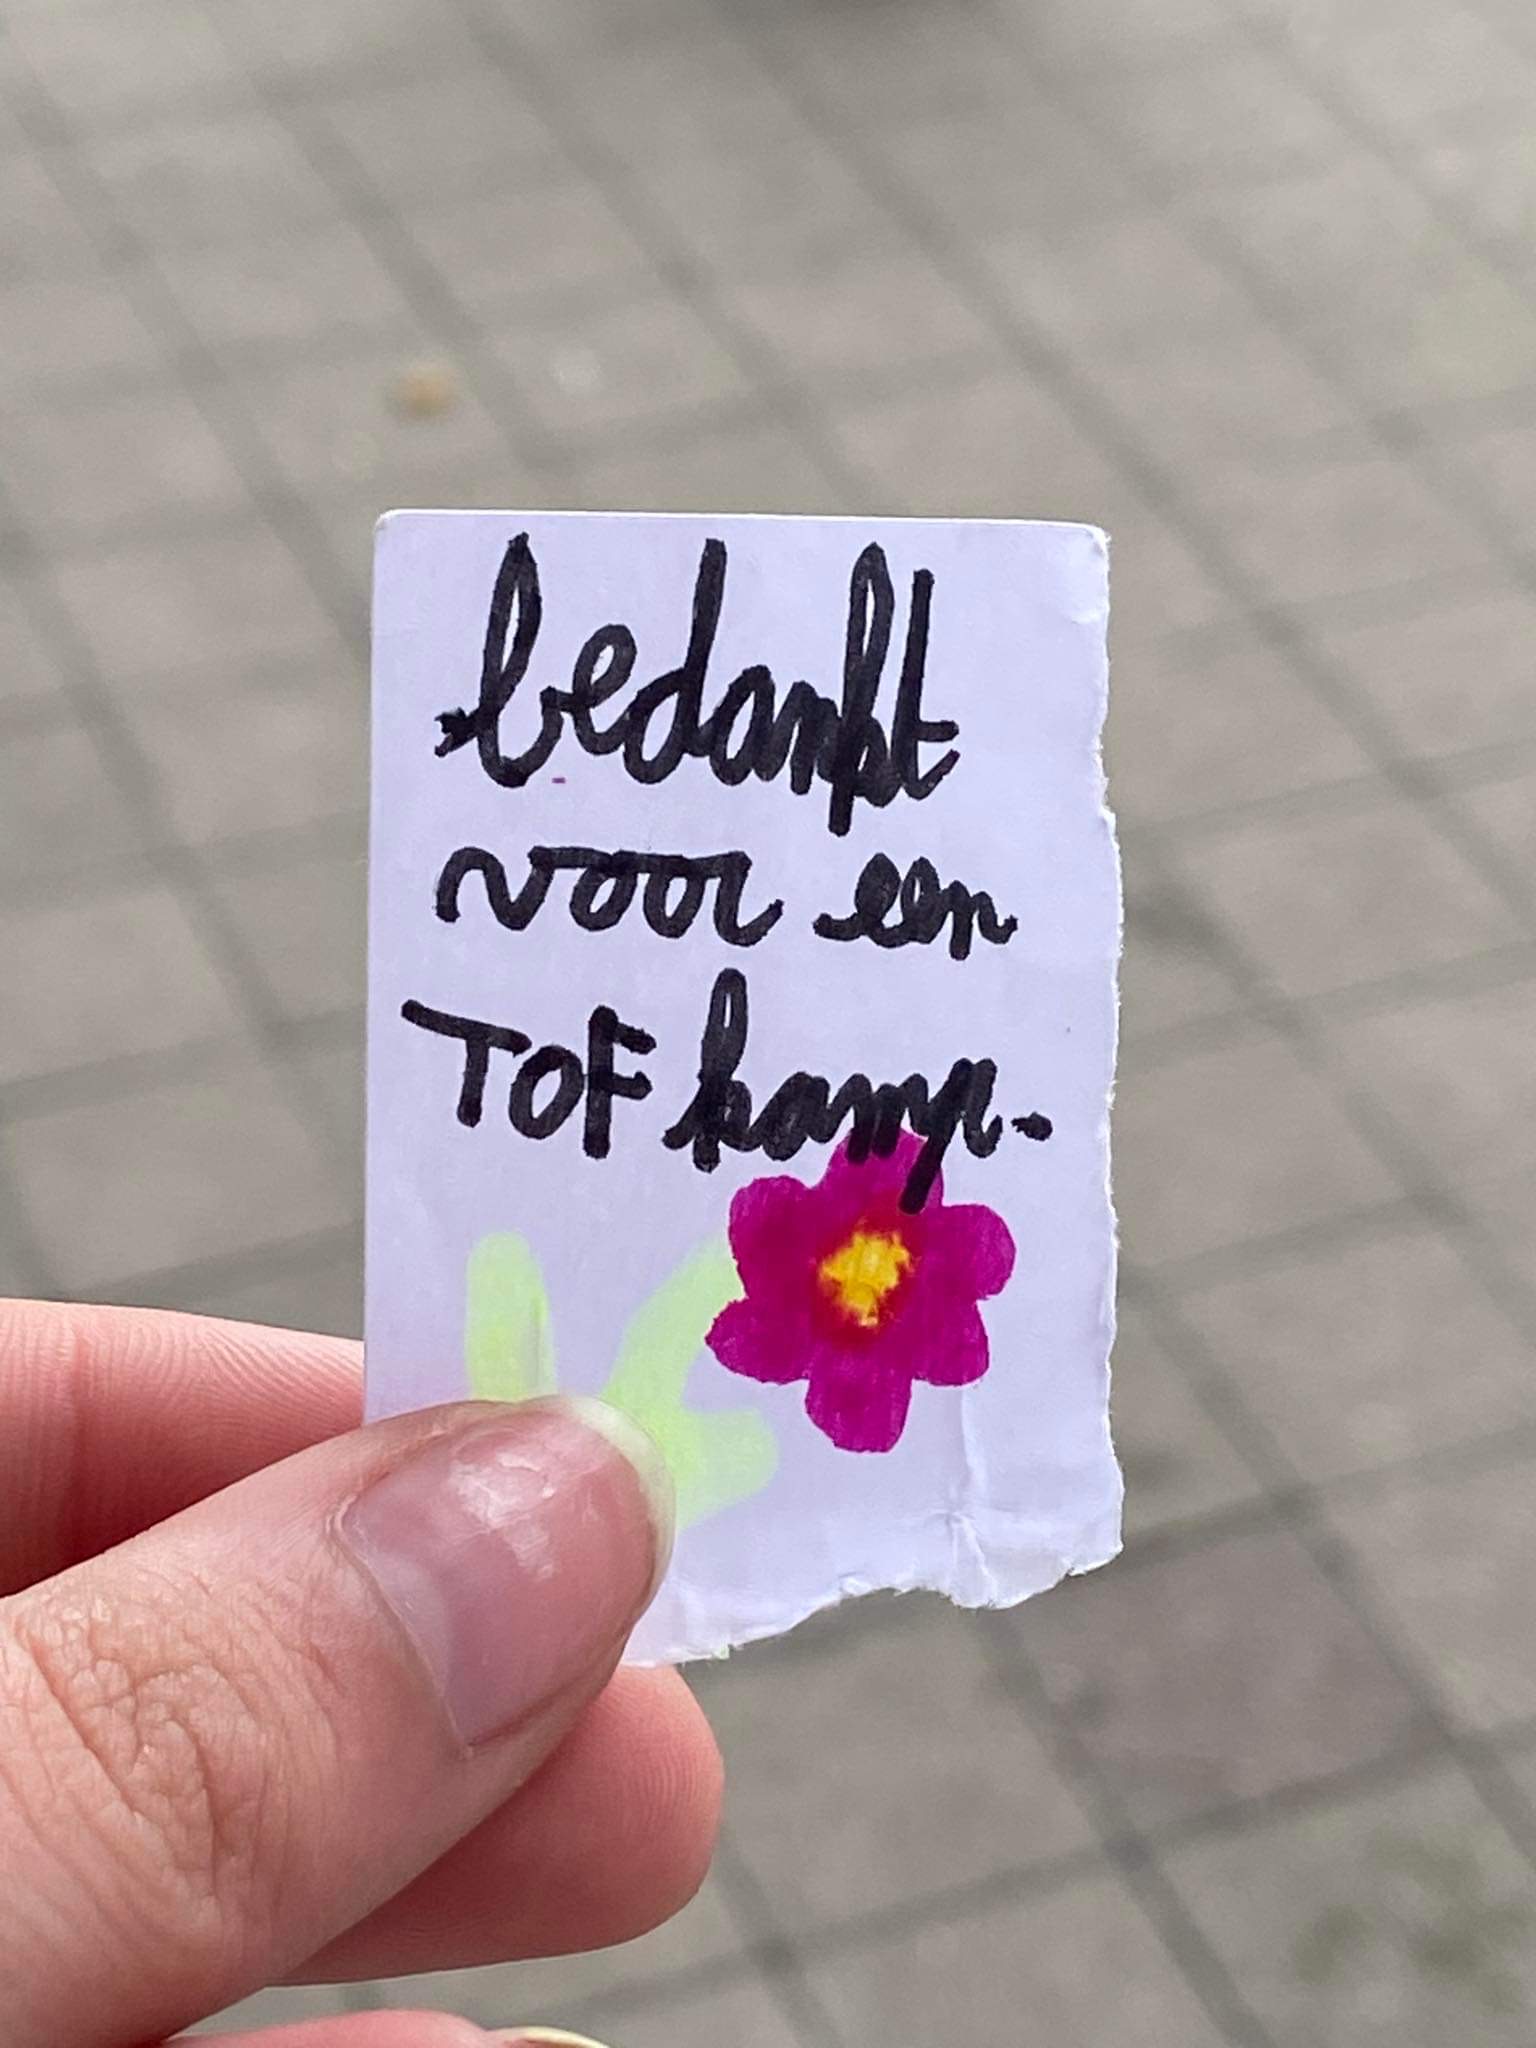 bedankt
voor een
TOF kamp.